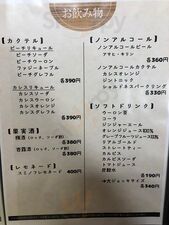 お飲み物
【カクテル】
ピーチリキュール
ピーチソーダ
ピーチウーロン
ファジーネーブル
ピーチグレフル
各390円
カシスリキュール
カシスソーダ
カシスウーロン
カシスオレンジ
カシスグレフル
各390円
【果実酒】
梅酒(ロック、ソーダ割)
各380円
杏露酒(ロック、ソーダ割)
各380円
【レモネード】
スミノフレモネード 400円
【ノンアルコール】
ノンアルコールビール
アサヒ・キリン
各360円
ノンアルコールカクテル
カシスオレンジ
ジントニック
シャルドネスパークリング
各330円
【ソフトドリンク】
ウーロン茶
コーラ
ジンジャーエール
オレンジジュース100%
グレープフルーツジュース100%
リアルゴールド
カルピス
カルピスソーダ
トマトジュース
炭酸水
各190円
中大ジョッキサイズ
各340円